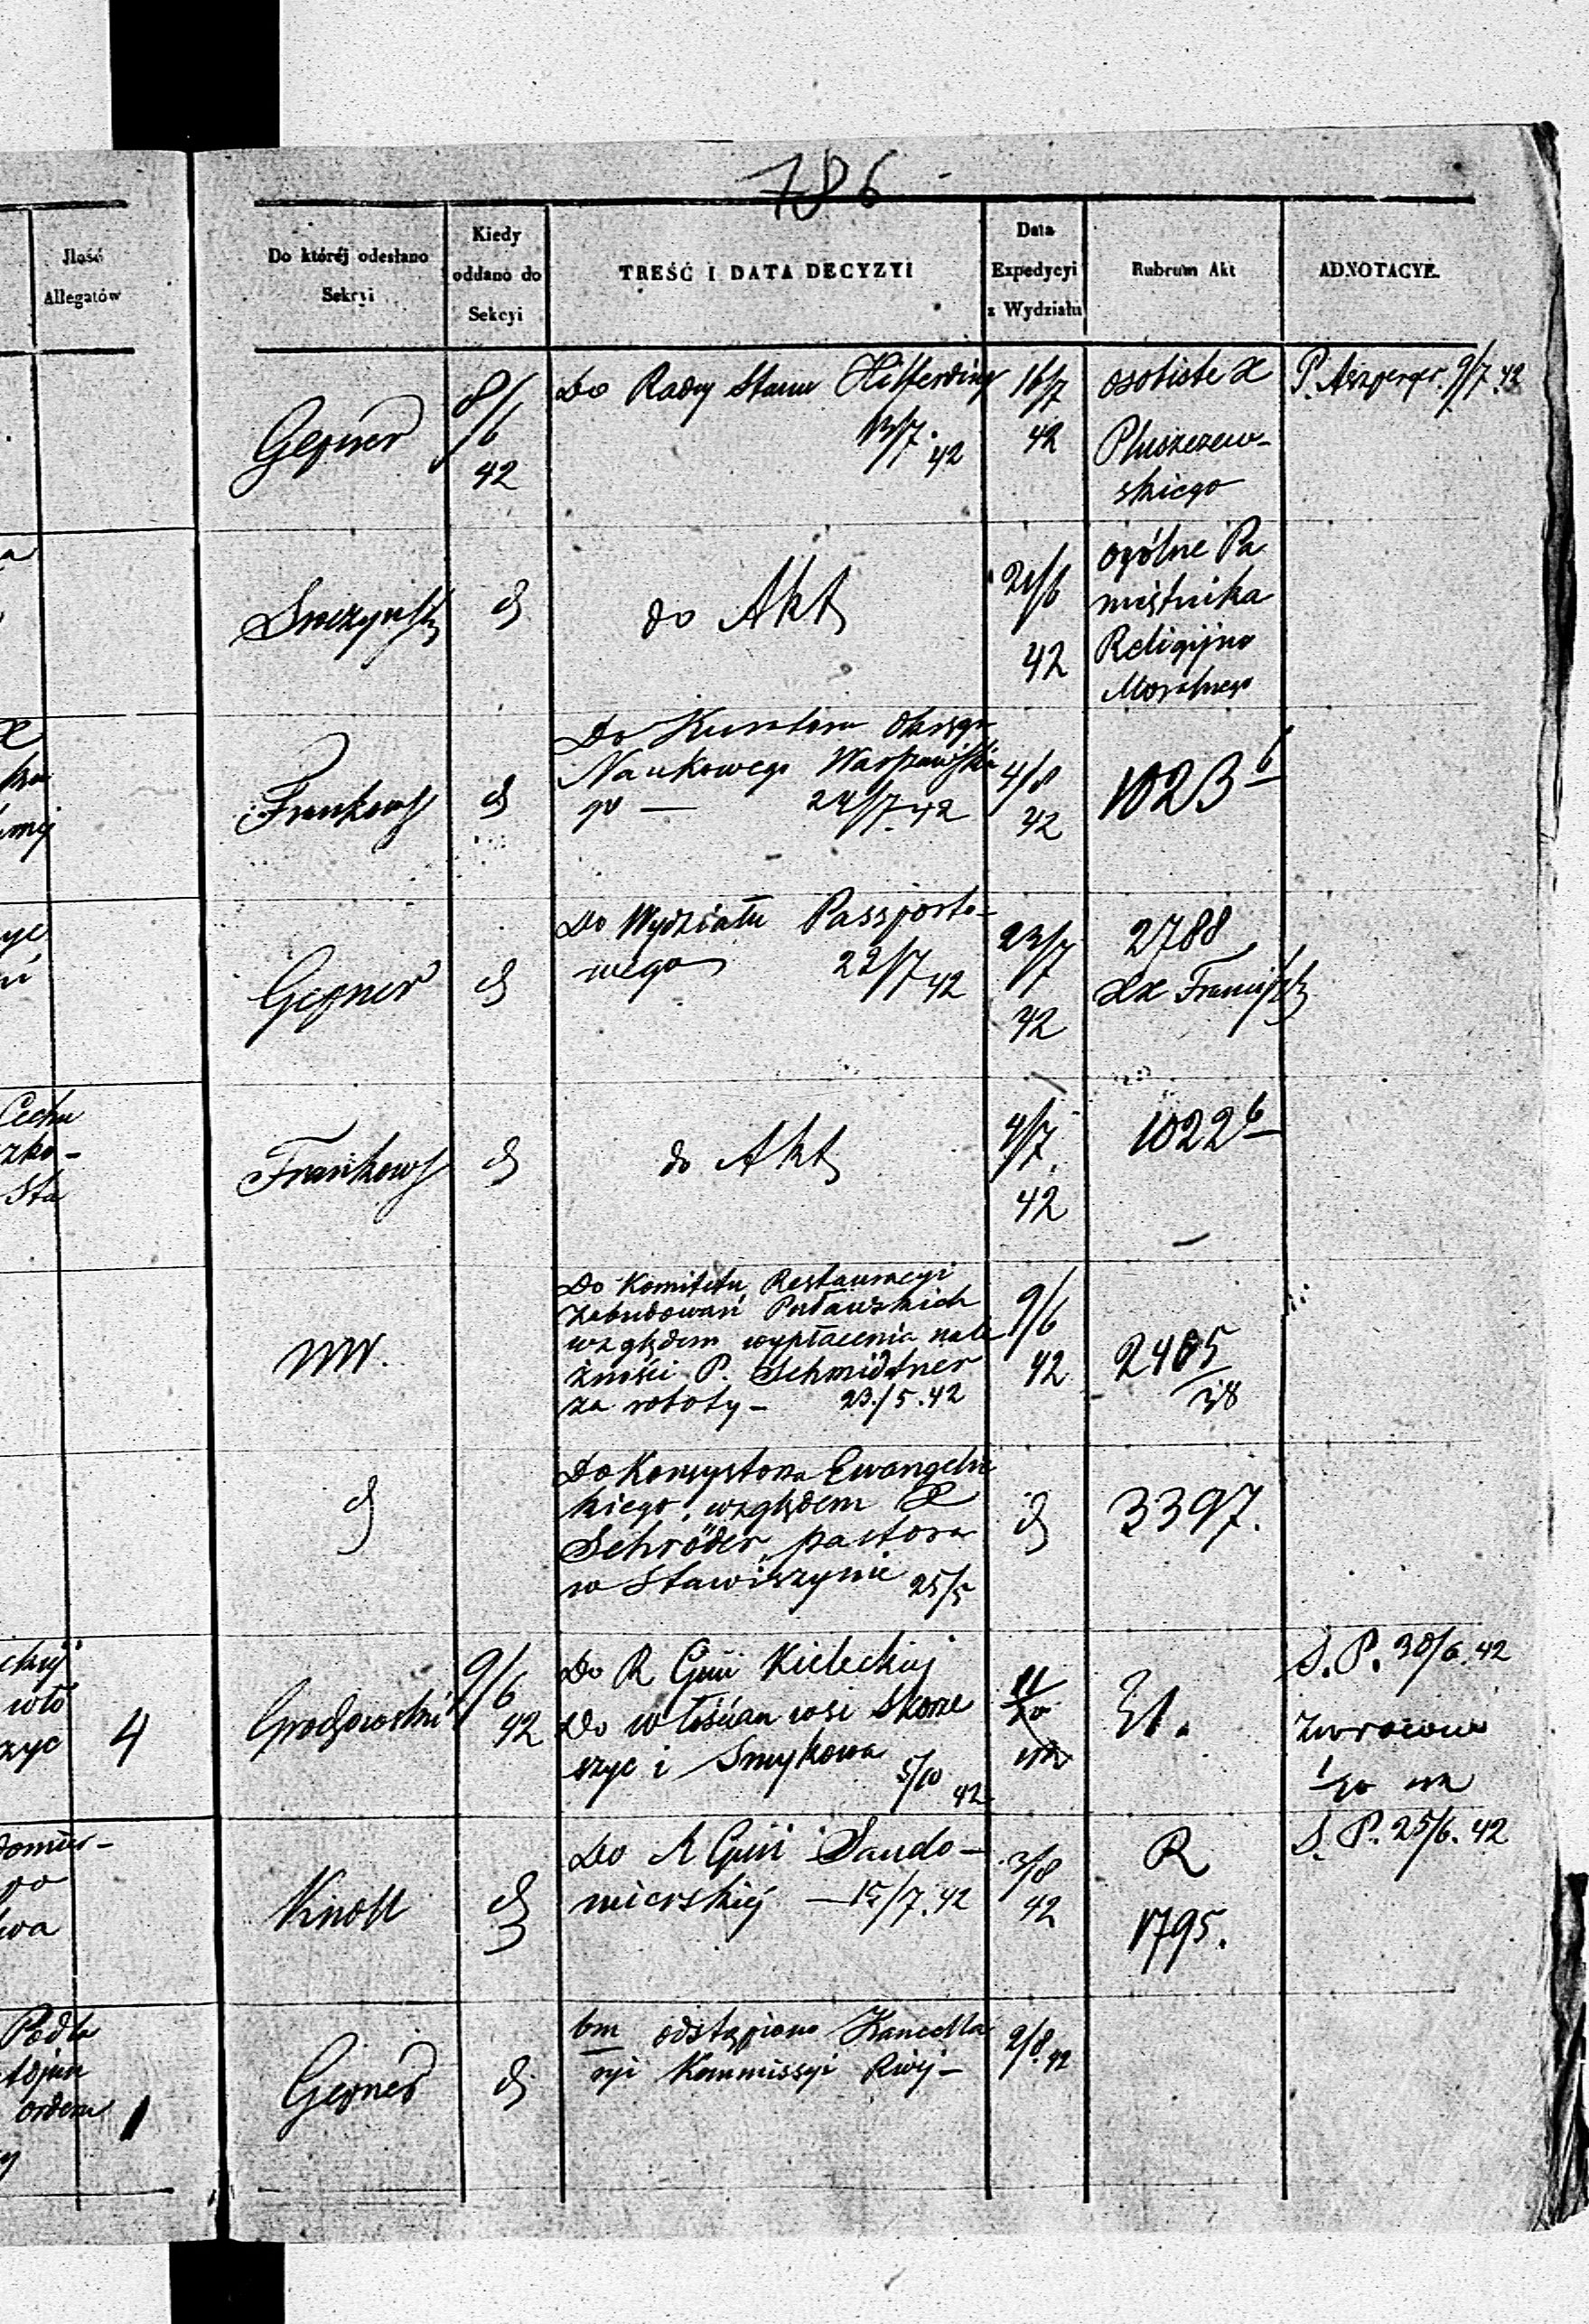 786
Jlość
Allegatów
Do któréj odesłano
Sekcyi
Kiedy
oddano do
Sekcyi
TREŚĆ I DATA DECYZYI
Data
Expedycyi
z Wydziału
Rubrum Akt
ADNOTACYE.
Gepner
8/6
42
Do Rady Stanu Hilferding
13/7. 42
16/7
42
osobiste X
Pluszczew-
skiego
9/7.42
do Akt
21/6
42
ogólne Pa
miętnika
Religijno
Moralnego
Frankows
Do Kuratora Okręgu
Naukowego Warszawskie
go — 24/7.42
4/8
42
1023 b
Gepner
Do Wydziału Passporto-
wego 22/7 42
23/7
42
2788
Cechu
czko-
Sta
Frankows
do Akt
4/7.
42
1022 b
mr.
Do Komitetu Restauracyi
Zabudowań Puławskich
względem wypłacenia nale
żności P. Schmidtner
za roboty - 23./5.42
9/6
42
2465
/38
Do Konsystorza Ewangelic
kiego, względem X
Schröder pastora
w Stawiszynie 25/5
3397.
4
Grodzowski
9/6
42
Do R Gün Kieleckiej
Do włościan wsi Skorze
szyc i Smykowa 5/10 42
31.
S. P. 30/6.42
zwrócono
Knoll
Do R Gün Sando-
mierskiej — 15/7.42
3/8
42
R
1795.
S. P. 25/6.42
Podla
ordem
1
Gepner
bm odstąpiono Kancella
ryi Kommissyi Rząd-
2/8.42